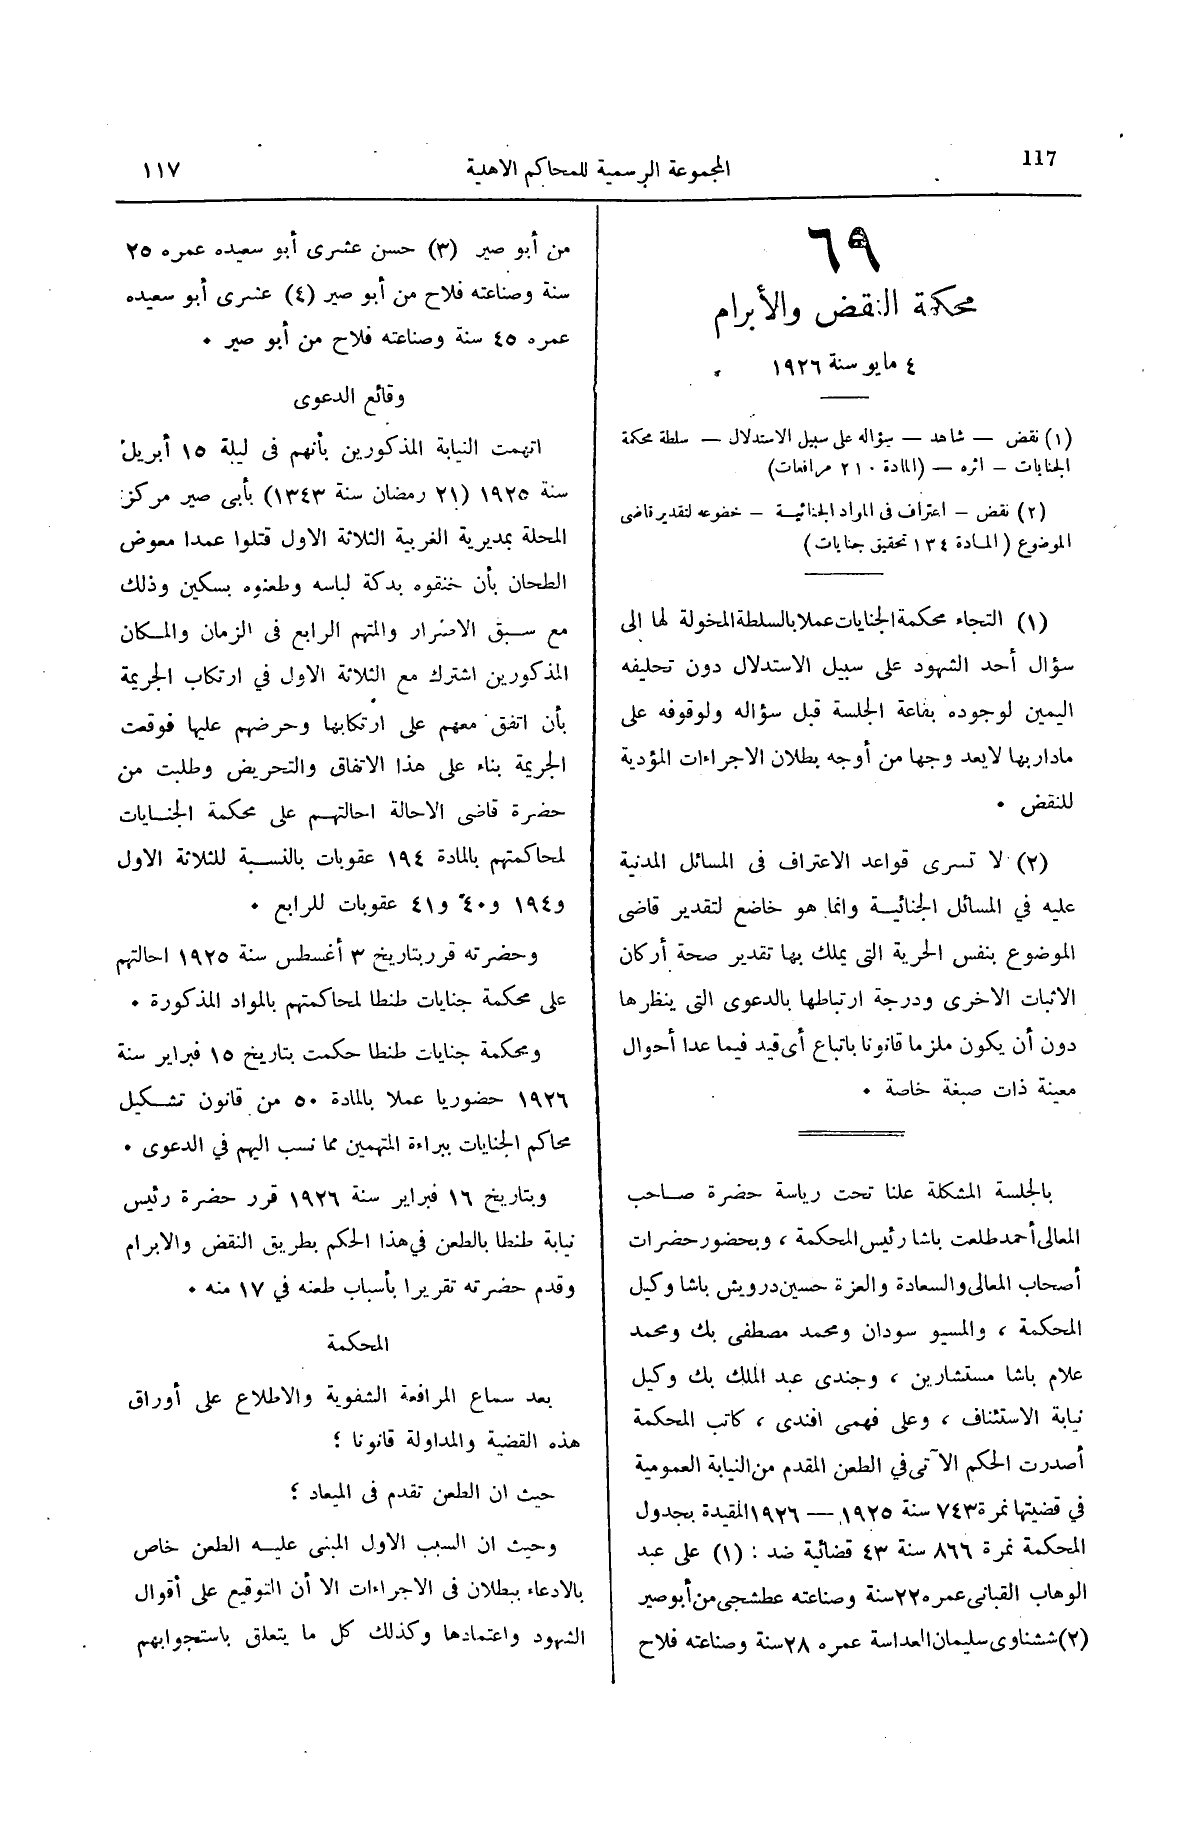 117
المجموعة الرسمية للمحاكم الاهلية
١١٧
٦٩
محكمة النقض والأبرام
٤ مايو سنة ١٩٢٦
(١) نقض — شاهد — سؤاله على سبيل الاستدلال — سلطة محكمة
الجنايات — اثره — (المادة ٢١٠ مرافعات)
(٢) نقض — اعتراف فى المواد الجنائية — خضوعه لتقدير قاضى
الموضوع (المادة ١٣٤ تحقيق جنايات)
(١) التجاء محكمة الجنايات عملا بالسلطة المخولة لها الى
سؤال أحد الشهود على سبيل الاستدلال دون تحليفه
اليمين لوجوده بقاعة الجلسة قبل سؤاله ولوقوفه على
ماداربها لايعد وجها من أوجه بطلان الاجراءات المؤدية
للنقض ٠
(٢) لا تسرى قواعد الاعتراف فى المسائل المدنية
عليه في المسائل الجنائية وانما هو خاضع لتقدير قاضى
الموضوع بنفس الحرية التى يملك بها تقدير صحة أركان
الاثبات الاخرى ودرجة ارتباطها بالدعوى التى ينظرها
دون أن يكون ملزما قانونا باتباع أى قيد فيما عدا أحوال
معينة ذات صبغة خاصة ٠
بالجلسة المشكلة علنا تحت رياسة حضرة صاحب
المعالى أحمد طلعت باشا رئيس المحكمة ، وبحضور حضرات
أصحاب المعالى والسعادة والعزة حسين درويش باشا وكيل
المحكمة ، والمسيو سودان ومحمد مصطفى بك ومحمد
علام باشا مستشارين ، وجندى عبد الملك بك وكيل
نيابة الاستئناف ، وعلى فهمى افندى ، كاتب المحكمة
أصدرت الحكم الآتى في الطعن المقدم من النيابة العمومية
في قضيتها نمرة ٧٤٣ سنة ١٩٢٥ — ١٩٢٦ المقيدة بجدول
المحكمة نمرة ٨٦٦ سنة ٤٣ قضائية ضد : (١) على عبد
الوهاب القبانى عمره ٢٢ سنة وصناعته عطشجى من أبو صير
(٢) ششناوى سليمان العداسة عمره ٢٨ سنة وصناعته فلاح
من أبو صير (٣) حسن عشرى أبو سعيده عمره ٢٥
سنة وصناعته فلاح من أبو صير (٤) عشرى أبو سعيده
عمره ٤٥ سنة وصناعته فلاح من أبو صير ٠
وقائع الدعوى
اتهمت النيابة المذكورين بأنهم فى ليلة ١٥ أبريل
سنة ١٩٢٥ (٢١ رمضان سنة ١٣٤٣) بأبى صير مركز
المحلة بمديرية الغربية الثلاثة الاول قتلوا عمدا معوض
الطحان بأن خنقوه بدكة لباسه وطعنوه بسكين وذلك
مع سبق الاضرار والمتهم الرابع فى الزمان والمكان
المذكورين اشترك مع الثلاثة الاول في ارتكاب الجريمة
بأن اتفق معهم على ارتكابها وحرضهم عليها فوقعت
الجريمة بناء على هذا الاتفاق والتحريض وطلبت من
حضرة قاضى الاحالة احالتهم على محكمة الجنايات
لمحاكمتهم بالمادة ١٩٤ عقوبات بالنسبة للثلاثة الاول
و١٩٤ و٤٠ و٤١ عقوبات للرابع ٠
وحضرته قرر بتاريخ ٣ أغسطس سنة ١٩٢٥ احالتهم
على محكمة جنايات طنطا لمحاكمتهم بالمواد المذكورة ٠
ومحكمة جنايات طنطا حكمت بتاريخ ١٥ فبراير سنة
١٩٢٦ حضوريا عملا بالمادة ٥٠ من قانون تشكيل
محاكم الجنايات ببراءة المتهمين مما نسب اليهم في الدعوى ٠
وبتاريخ ١٦ فبراير سنة ١٩٢٦ قرر حضرة رئيس
نيابة طنطا بالطعن في هذا الحكم بطريق النقض والابرام
وقدم حضرته تقريرا بأسباب طعنه في ١٧ منه ٠
المحكمة
بعد سماع المرافعة الشفوية والاطلاع على أوراق
هذه القضية والمداولة قانونا ؛
حيث ان الطعن تقدم فى الميعاد ؛
وحيث ان السبب الاول المبنى عليه الطعن خاص
بالادعاء ببطلان فى الاجراءات الا أن التوقيع على أقوال
الشهود واعتمادها وكذلك كل ما يتعلق باستجوابهم